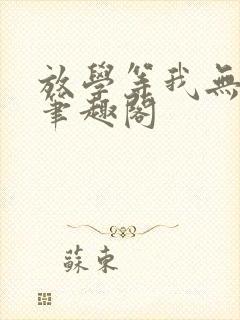 放學等我無
筆趣閣
蘇東